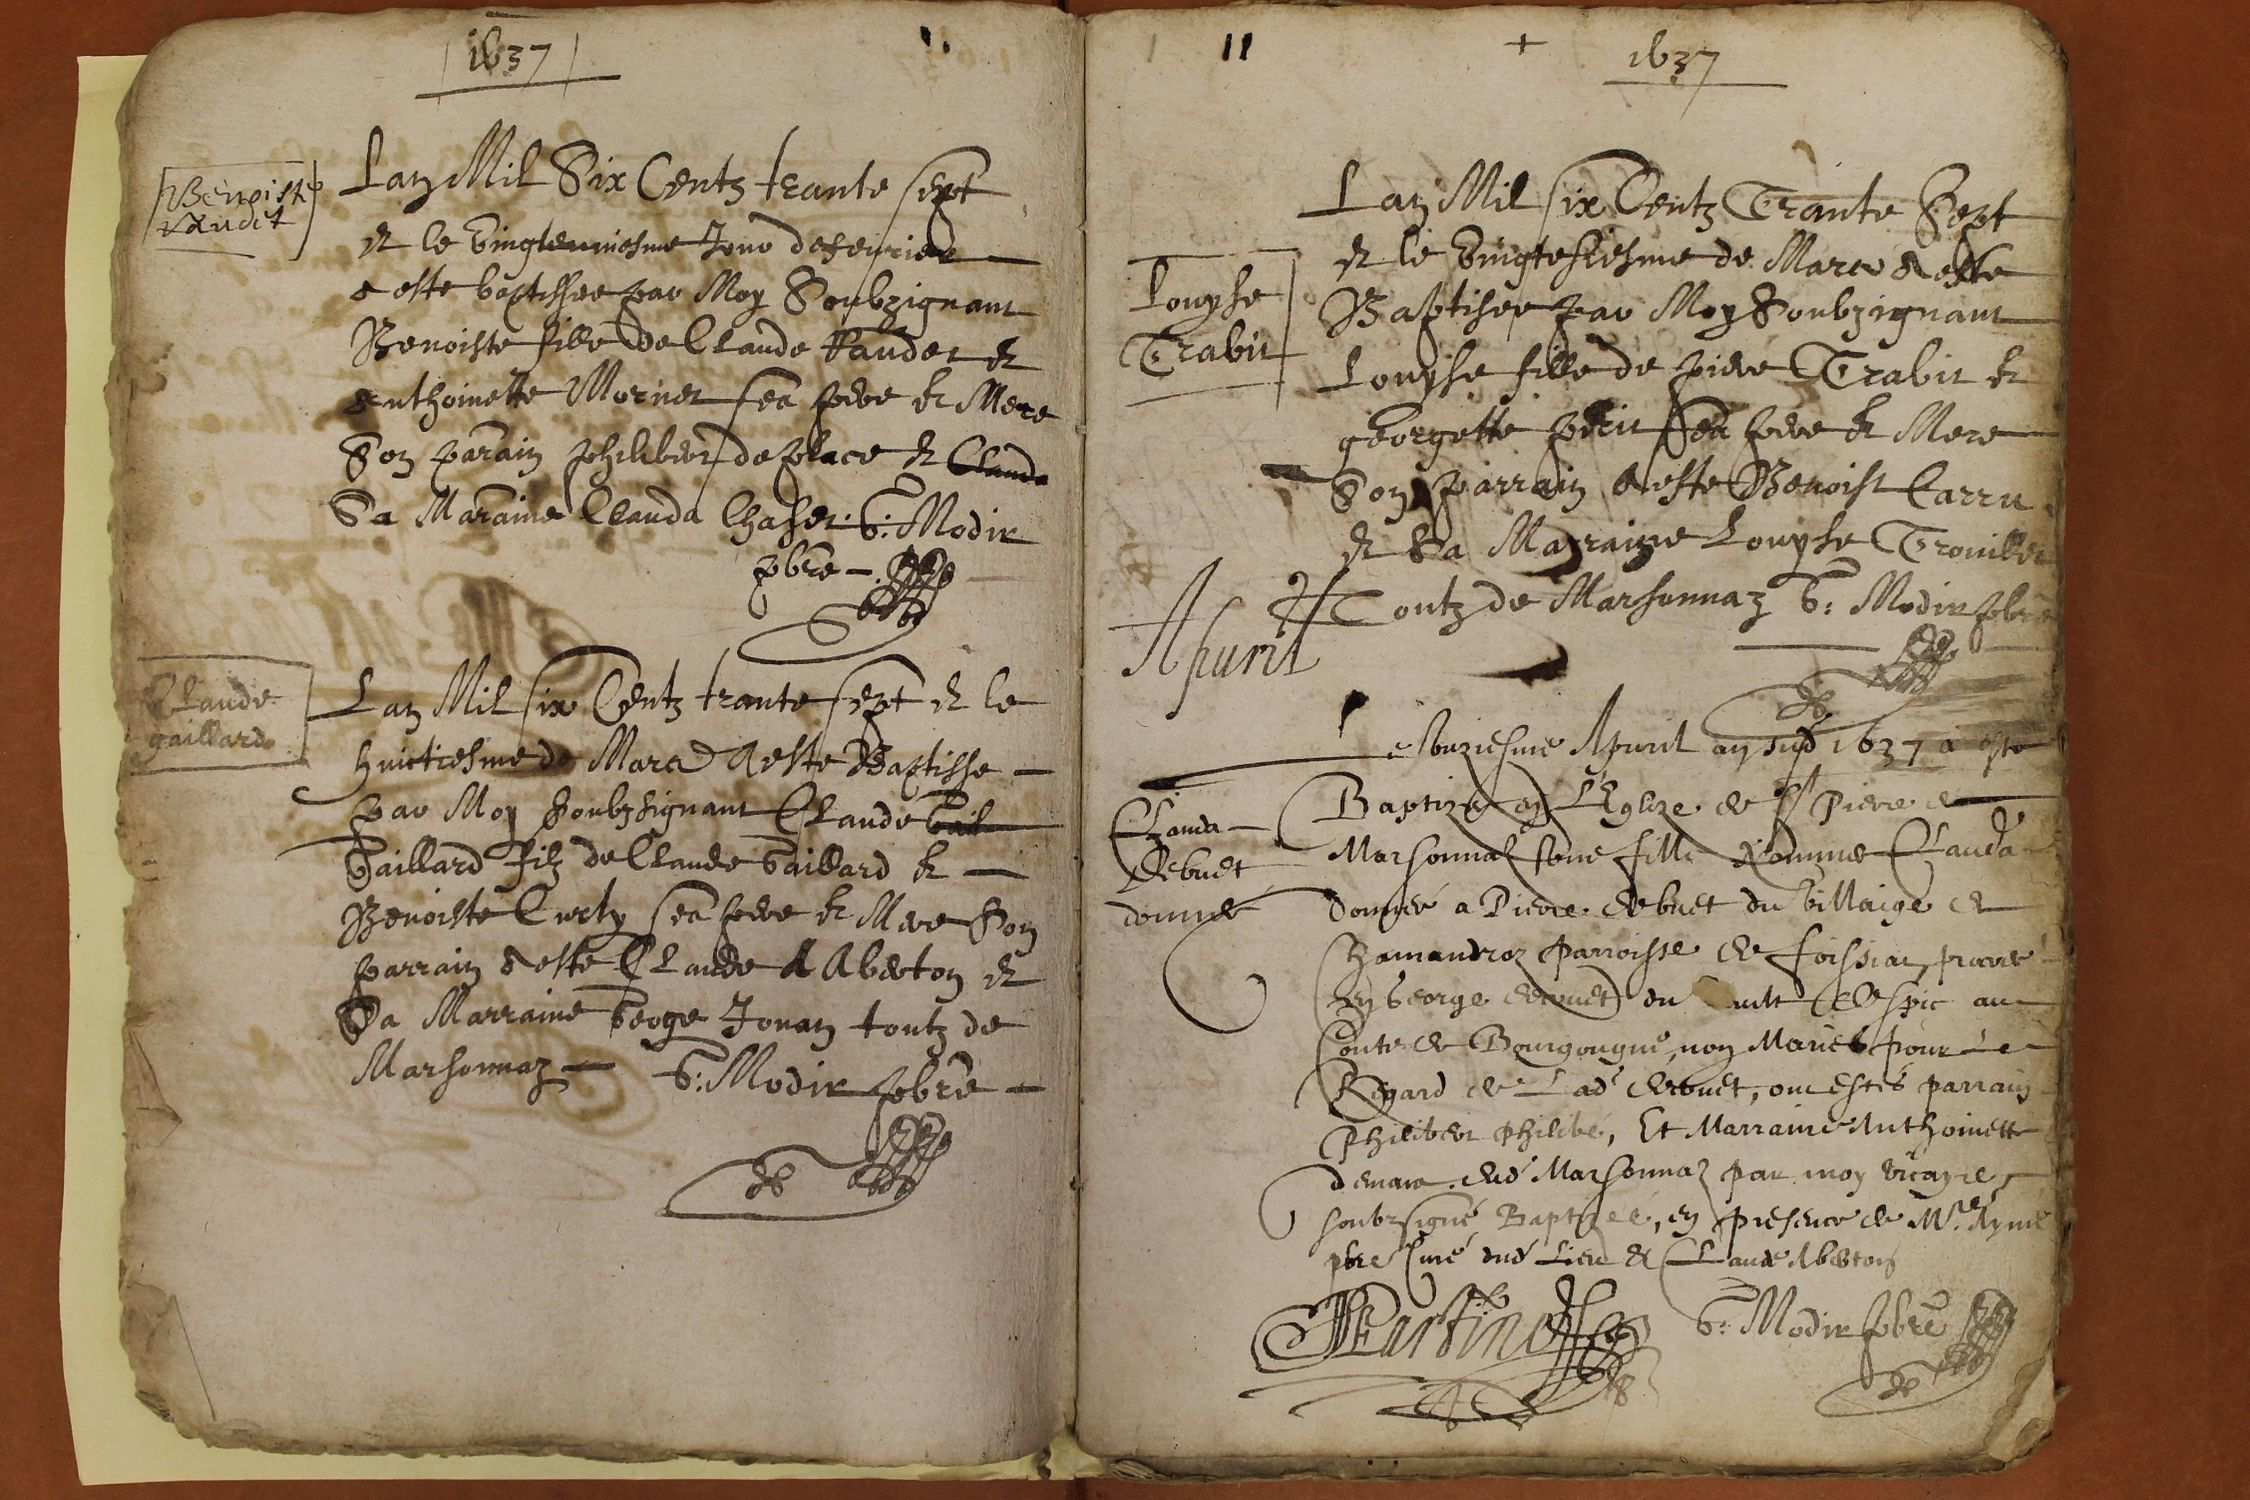 1637
Benoiste
Vaudet
Lan Mil Six Centz trante sept
et le vingteuniesme Jour de febvrier
a este baptissee par Moy Soubzignant
Benoiste fille de Claude Vaudet et
Anthoinette Mornet sea pere et Mere
Son parain philibert de place et Clauda
Sa Maraine Clauda Chaset. G: Modin
pbre
Claude
gaillard
Lan Mil six Centz trante sept et le
huictiesme de Marcs A este Baptisse
par Moy soubzsignant Claude Gail
Gaillard filz de Claude Gaillard et
Benoiste sea pere et Mere Son
parrain A este Claude A Aberton et
Sa Marraine George Jonan toutz de
Marsonnaz G: Modin pbre
11 + 1637
Louyse
Trabit
Lan Mil six Centz Trante Sept
et le vingtesiesme de Marcs A este
Baptisee par Moy Soubzignant
Louyse fille de piere Trabit et
georgette petit Sea pere et Mere
Son parrain A este Benoist Carru
et Sa Marraine Louyse Trouillet
Toutz de Marsonnaz G: Modin pbre
Apuril
Le Apuril an sud 1637 a este
Clauda
Debuet
donnee
Baptizé en L'Eglize de St Piere de
Marsonnaz une fille Nommee Clauda
donneé a Pierre debuet du Villaige de
parroisse de foissiat, procreé
en George debuet du de Lespic au
Conte de Bourgougne, non Marieé pour le
Regard de Lad debuet, ont estés parrain
Philibert Philibé, Et Marraine Anthoinette
demara dud Marsonnaz par moy vicayre
soubzsigné Baptizée, en presence de Mre Aymé
pbre Curé dud Lieu et Claude Aberton
Martin G: Modin pbre